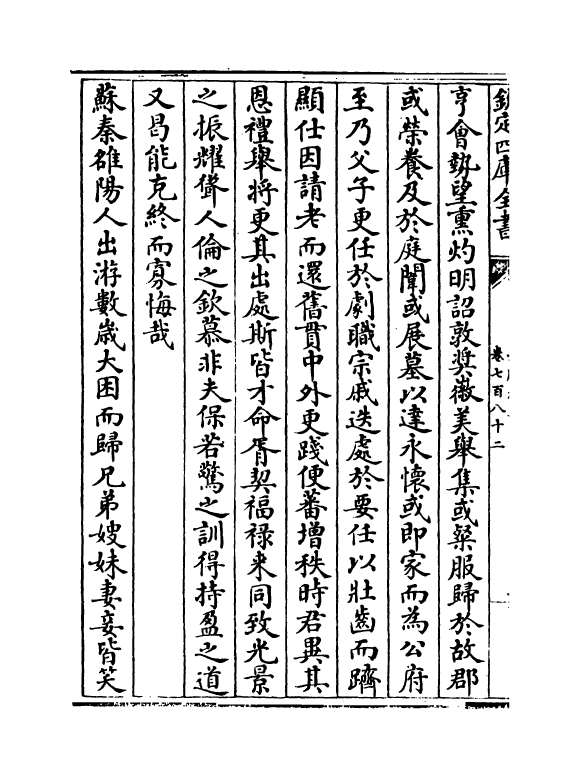 欽定四庫全書
卷七百八十二
亨會埶望熏灼明詔敦奬徽美舉集或粲服歸於故郡
或榮養及於庭闈或展墓以達永懷或即家而為公府
至乃父子更任於劇職宗戚迭處於要任以壯齒而躋
顯仕因請老而還舊貫中外更踐便蕃增秩時君異其
恩禮舉將更其出處斯皆才命胥契福禄来同致光景
之振耀聳人倫之欽慕非夫保若驚之訓得持盈之道
又曷能克終而寡悔哉
蘇秦雒陽人出游數歳大困而歸兄弟嫂妹妻妾皆笑